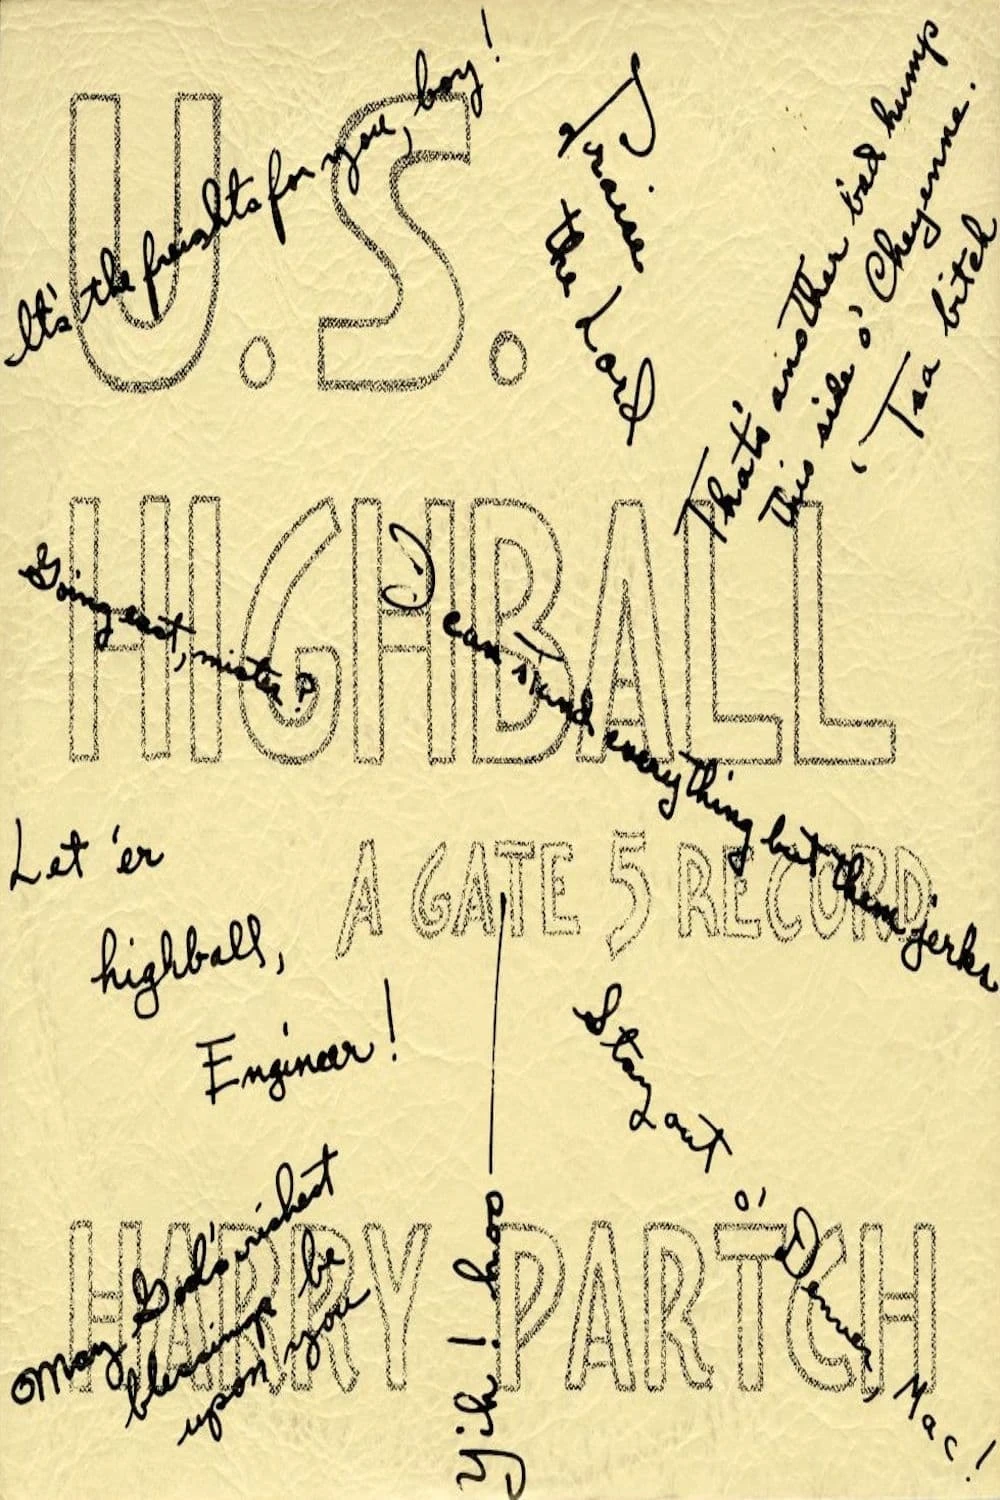 U.S.
HIGHBALL
A GATE 5 RECORD
HARRY PARTCH
It's the freights for you, boy!
Praise
the Lord
That's another bad hump
this side o' Cheyenne.
'Tsa bitch
Going east, mister?
I can stand everything but them jerks
Let 'er
highball,
Engineer!
Stay out
o'
Denver, Mac!
May God's richest
blessings be
upon you